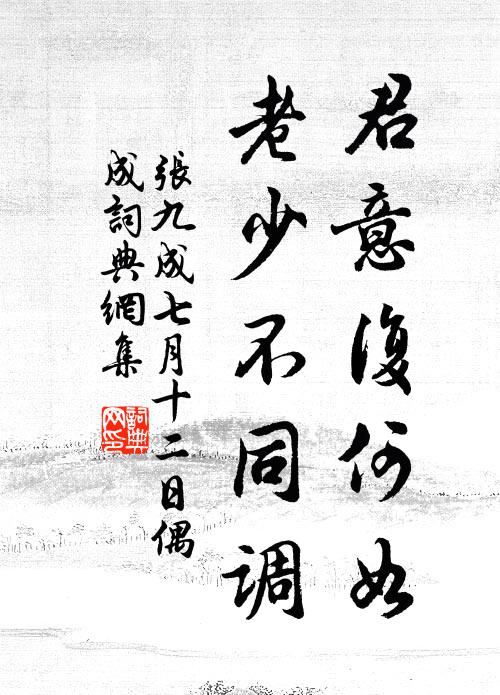 君意復何如
老少不同调
張九成七月十二日偶
成詞典網集
詞典网印